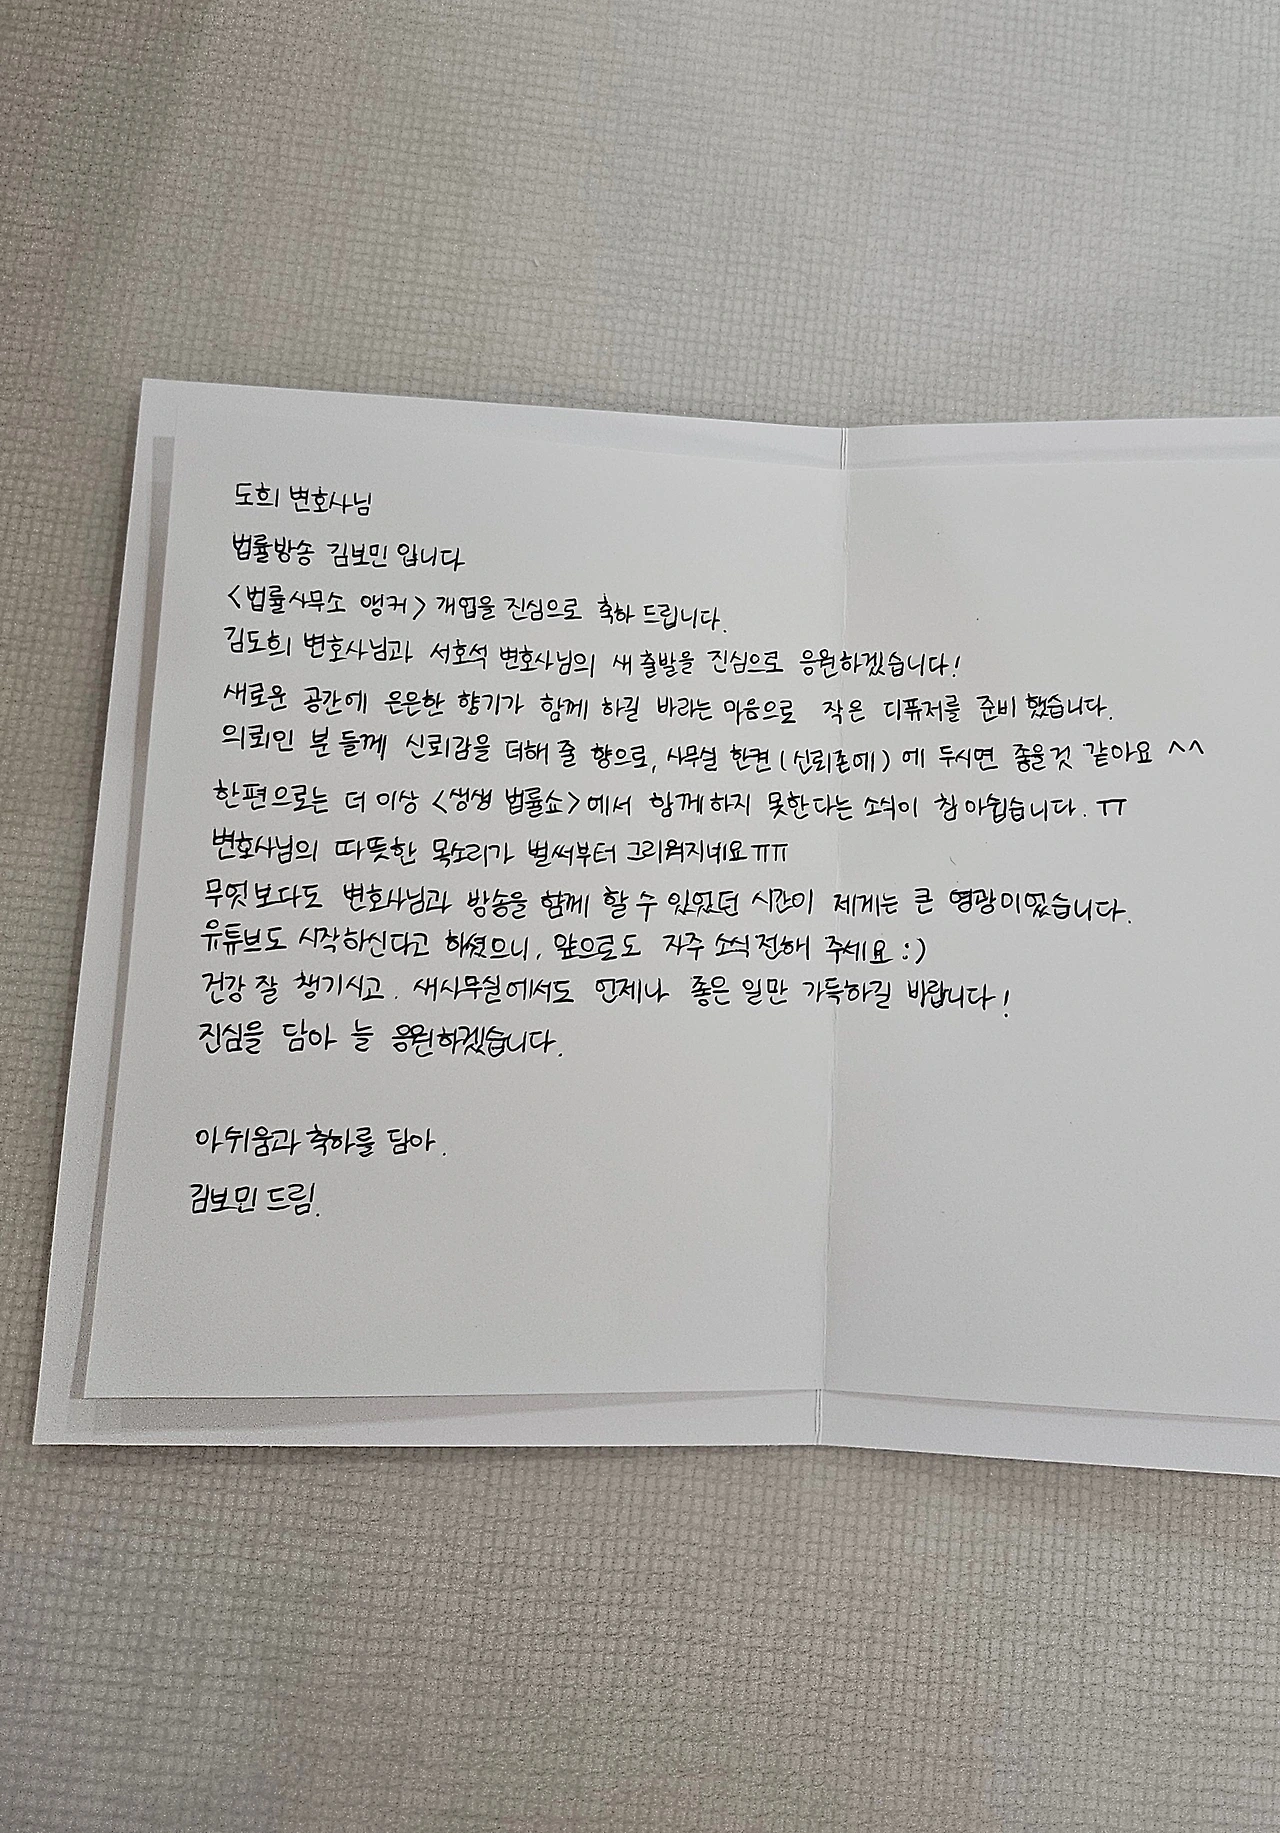 도희 변호사님
법률방송 김보민 입니다
<법률사무소 앵커> 개업을 진심으로 축하 드립니다.
김도희 변호사님과 서호석 변호사님의 새 출발을 진심으로 응원하겠습니다!
새로운 공간에 은은한 향기가 함께 하길 바라는 마음으로 작은 디퓨저를 준비 했습니다.
의뢰인 분들께 신뢰감을 더해 줄 향으로, 사무실 한켠(신뢰존에)에 두시면 좋을것 같아요 ^^
한편으로는 더 이상 <생생 법률쇼>에서 함께하지 못한다는 소식이 참 아쉽습니다. ㅠ
변호사님의 따뜻한 목소리가 벌써부터 그리워지네요 ㅠㅠ
무엇보다도 변호사님과 방송을 함께 할 수 있었던 시간이 제게는 큰 영광이었습니다.
유튜브도 시작하신다고 하셨으니, 앞으로도 자주 소식 전해 주세요 :)
건강 잘 챙기시고. 새사무실에서도 언제나 좋은 일만 가득하길 바랍니다!
진심을 담아 늘 응원하겠습니다.
아쉬움과 축하를 담아.
김보민 드림.